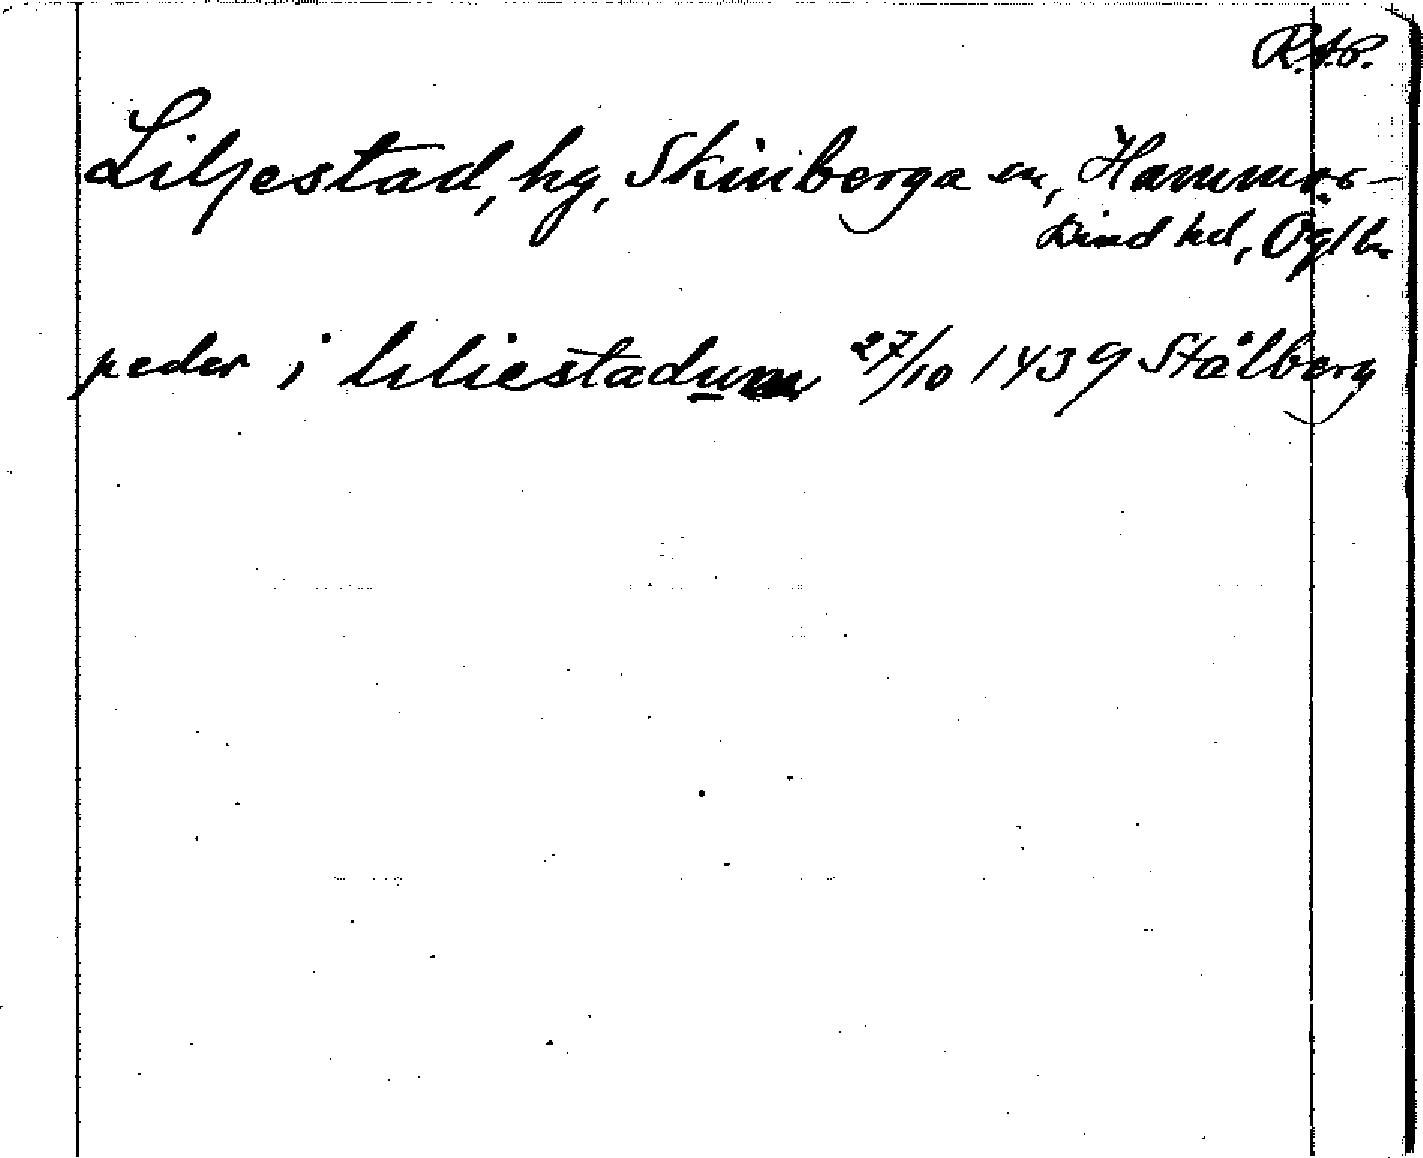 R.A.P.
Liljestad, hg, Skinberga sn, Hammar-
kind hd, Ögl br
peder i leliestadum 27/10 1439 Stålberg